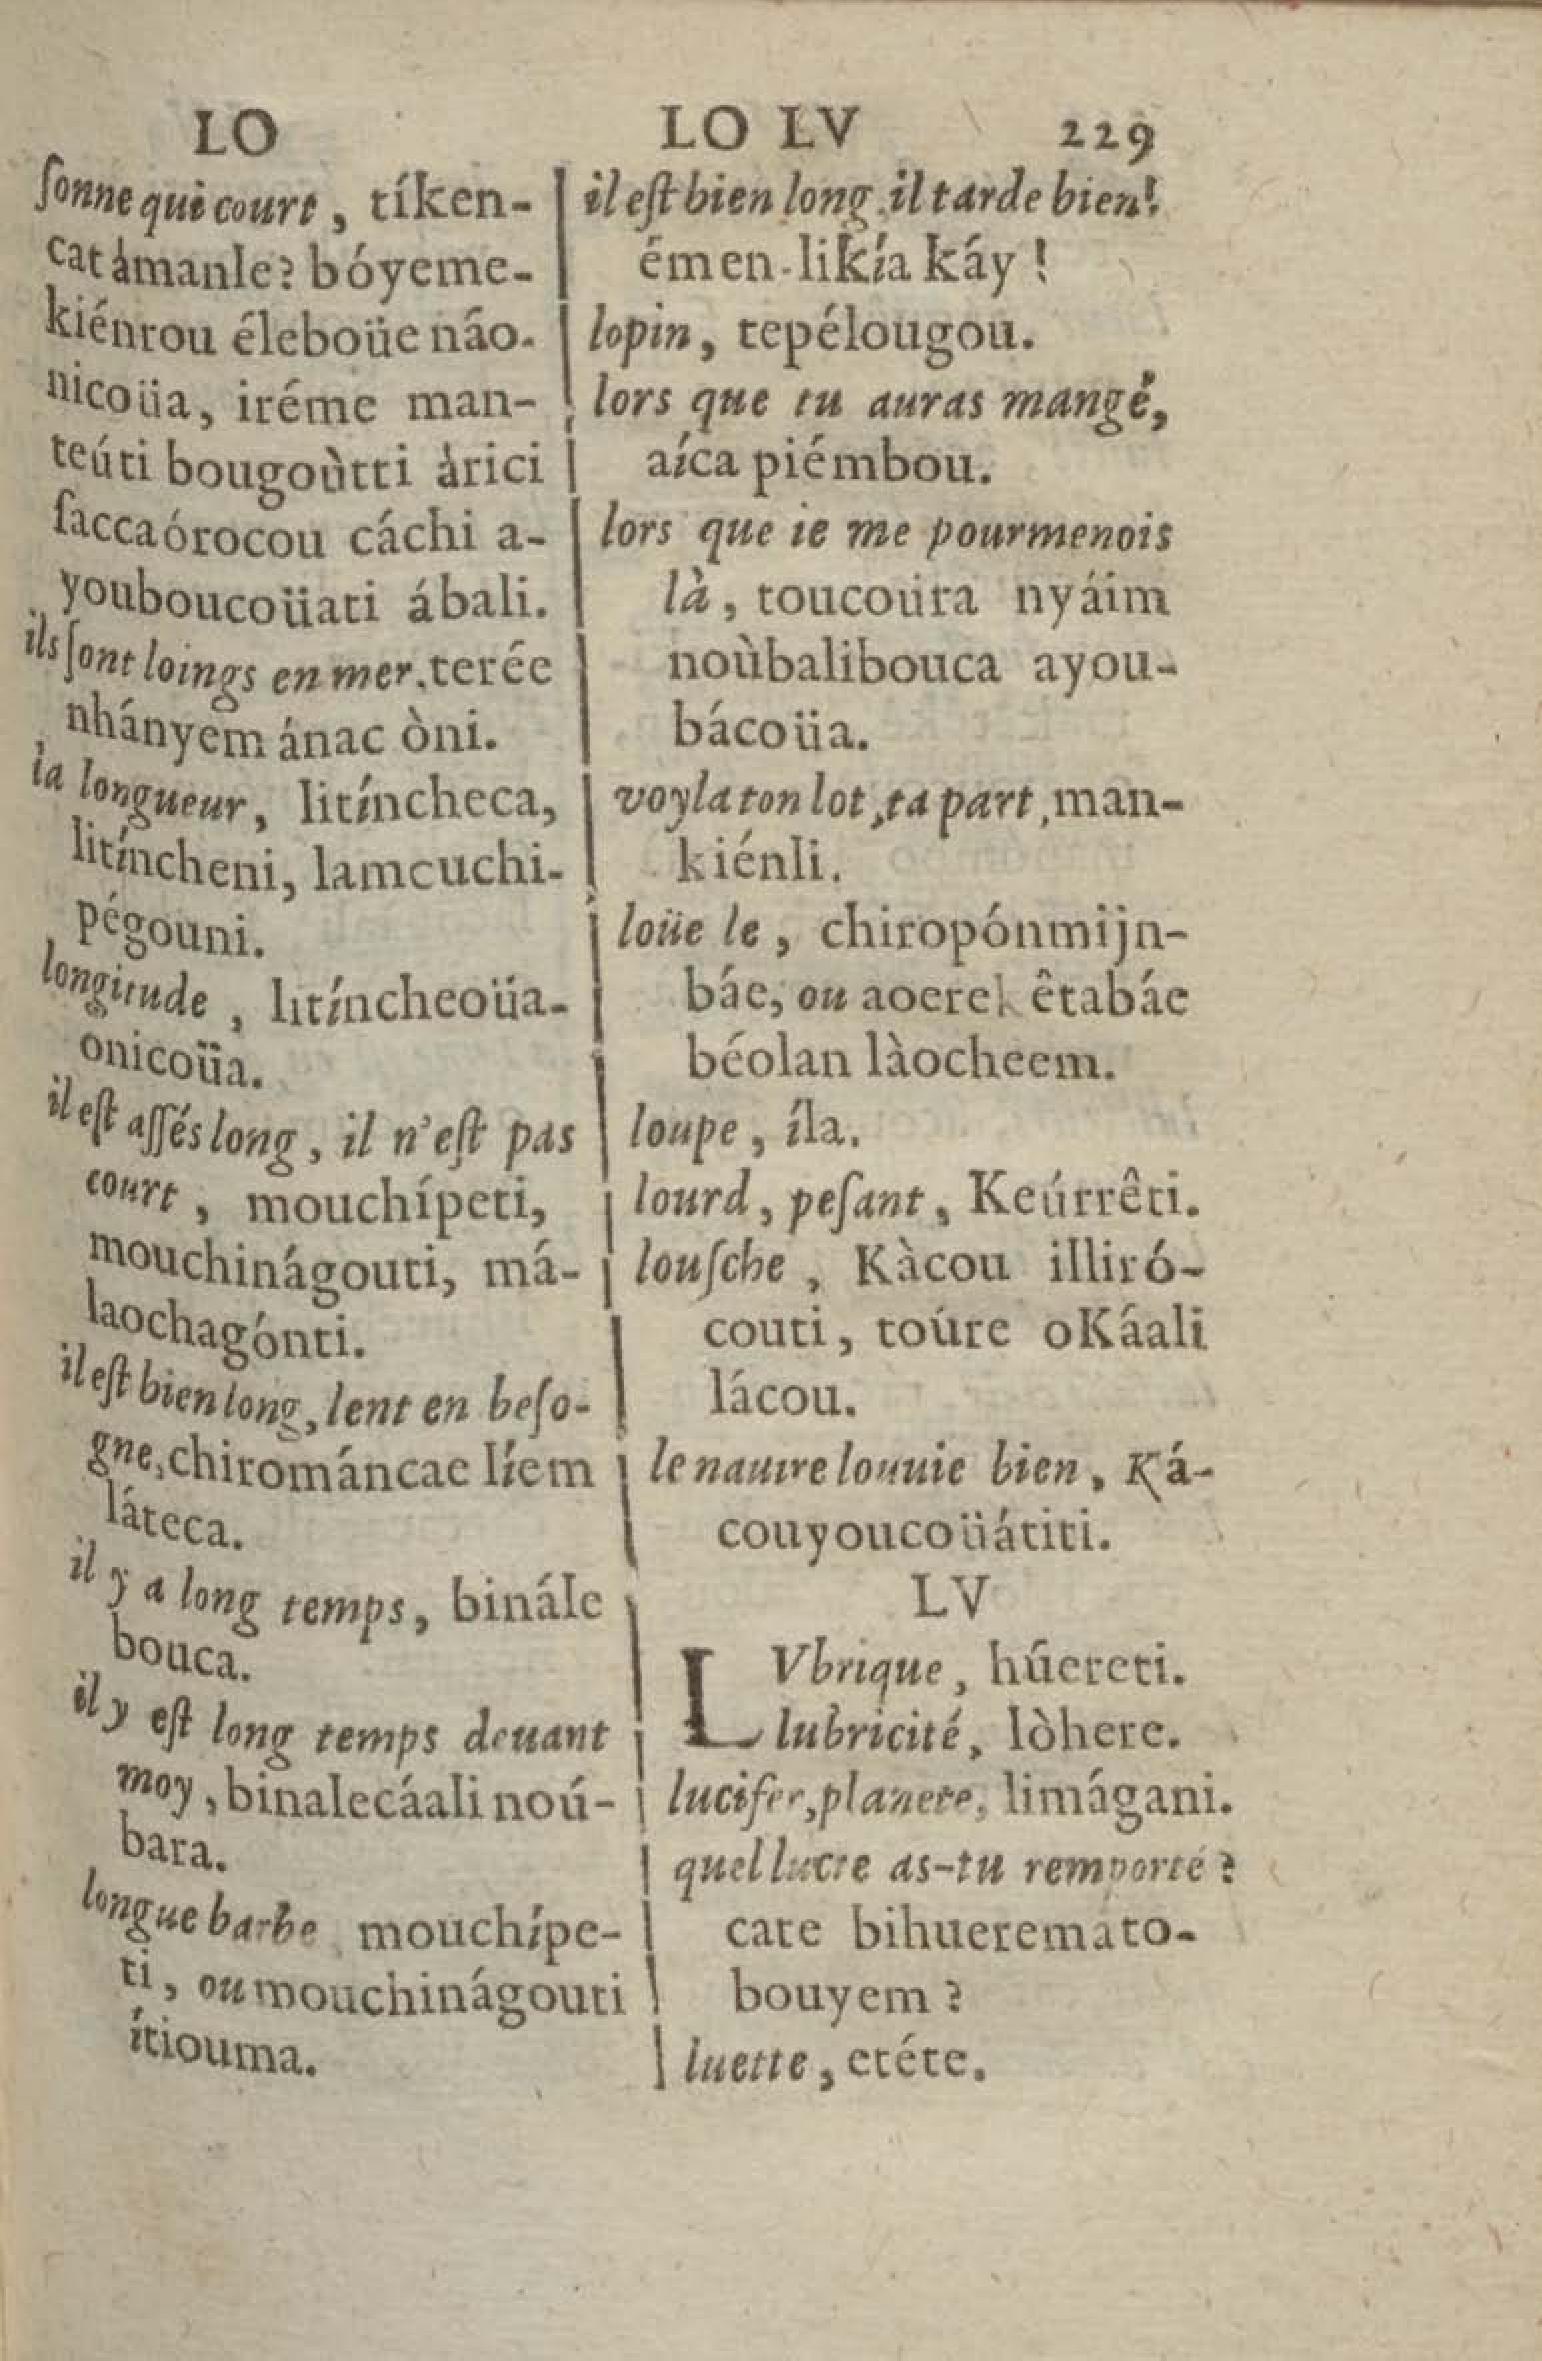 LO
ſonne qui court, tíken-
cat àmanle? bóyeme-
kiénrou éleboüe náo-
nicoüa, iréme man-
teúti bougoùtti àrici
ſaccaórocou cáchi a-
youboucoüati ábali.
ils ſont loings en mer. terée
nhányem ánac òni.
la longueur, litíncheca,
litíncheni, lamcuchi-
pégouni.
longitude, litíncheoüa-
onicoüa.
il eſt aſſés long, il n'eſt pas
court, mouchípeti,
mouchinágouti, má-
laochagónti.
il eſt bien long, lent en beſo-
gne, chirománcae líem
láteca.
il y a long temps, binále
bouca.
il y eſt long temps deuant
moy, binalecáali noú-
bara.
longue barbe mouchípe-
ti, ou mouchinágouti
ítiouma.
LO LV 229
il eſt bien long, il tarde bien!
émen-likía káy!
lopin, tepélougou.
lors que tu auras mangé,
aíca piémbou.
lors que ie me pourmenois
là, toucoúra nyáim
noùbalibouca ayou-
bácoüa.
voyla ton lot, ta part, man-
kiénli.
loüe le, chiropónmijn-
báe, ou aoerek êtabáe
béolan làocheem.
loupe, íla.
lourd, peſant, Keúrrêti.
louſche, Kàcou illiró-
couti, toúre oKáali
lácou.
le nauire louuie bien, Ká-
couyoucoüátiti.
LV
LVbrique, húereti.
lubricité, lòhere.
lucifer, planete, limágani.
quel lucre as-tu remporté?
cate bihueremato-
bouyem?
luette, etéte.